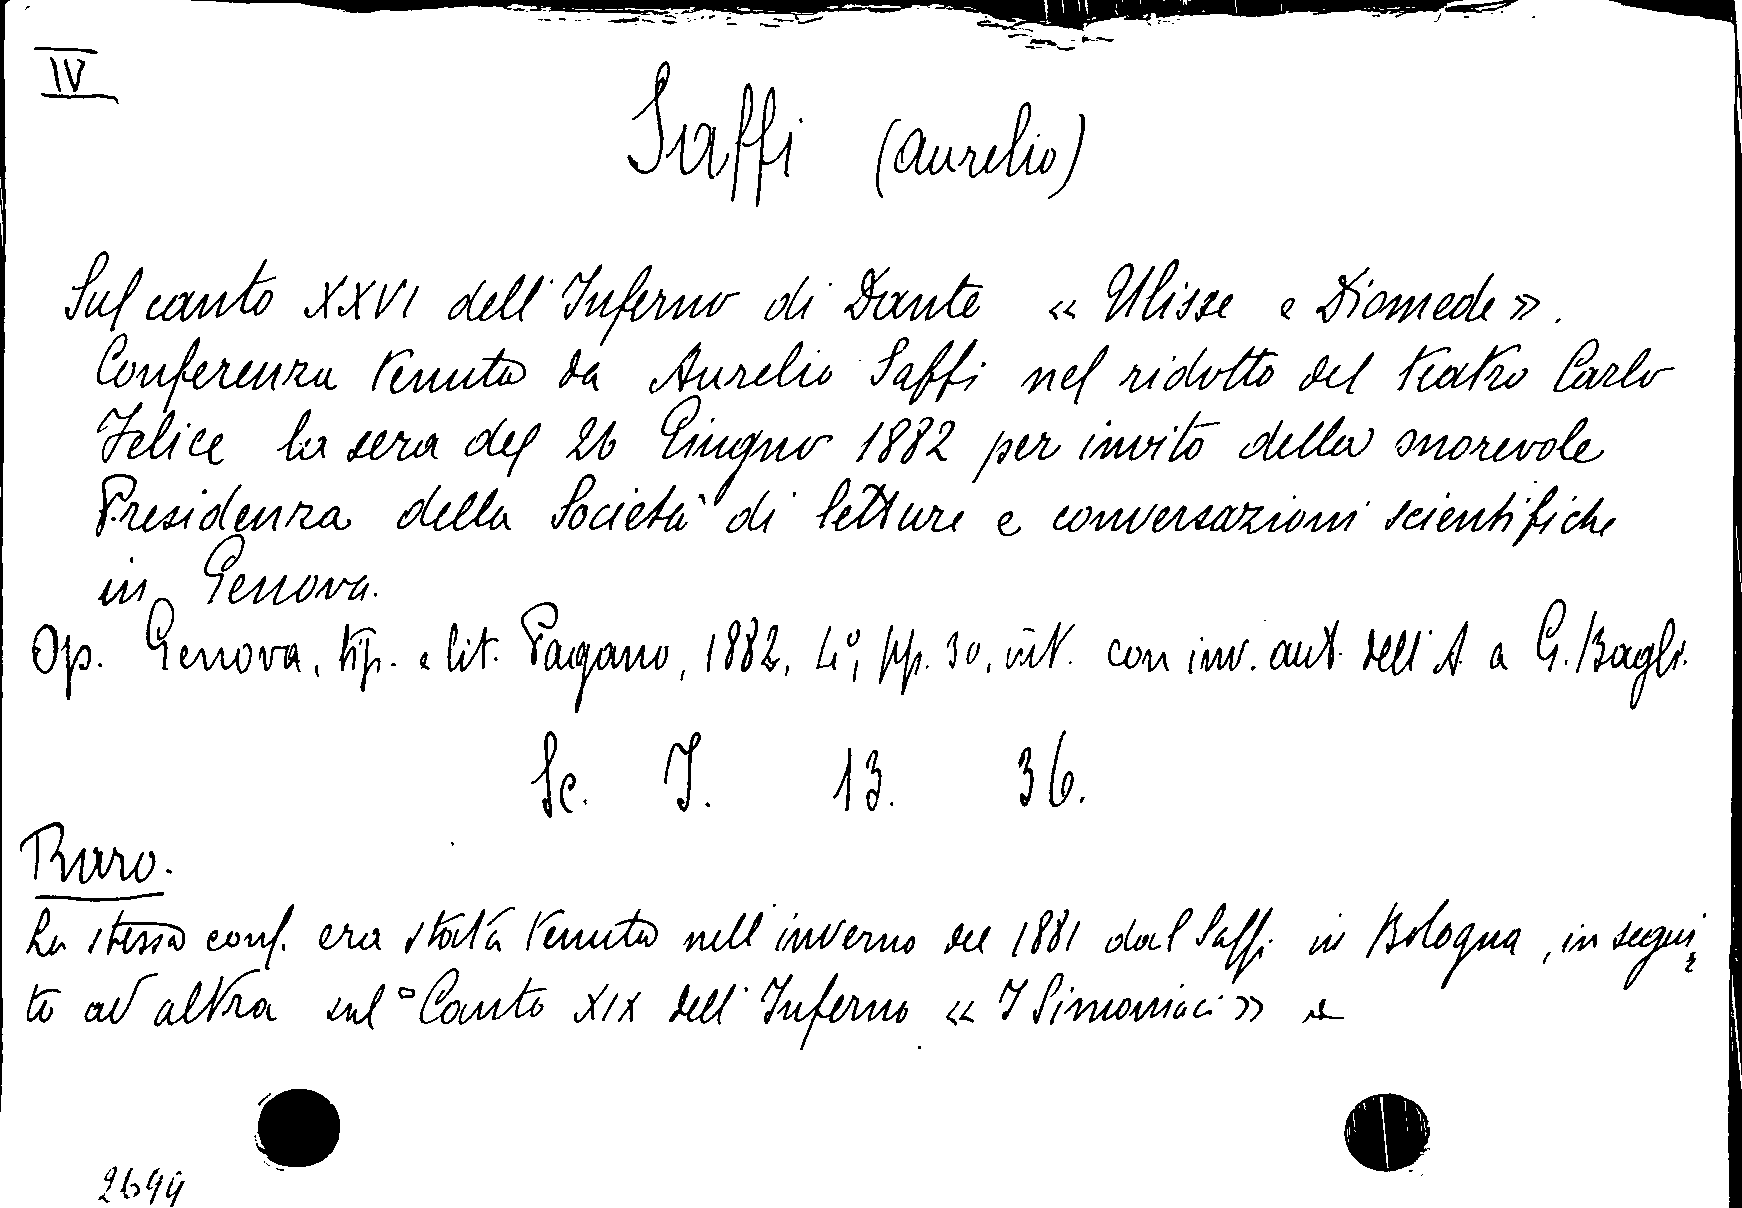 IV
Saffi (Aurelio)
Sul canto XXVI dell'Inferno di Dante « Ulisse e Diomede ».
Conferenza tenuta da Aurelio Saffi nel ridotto del teatro Carlo
Felice la sera del 26 Giugno 1882 per invito della onorevole
Presidenza della Società di letture e conversazioni scientifiche
in Genova.
Op. Genova, tip. e lit. Pagano, 1882, 4°, pp. 30, int. con inv. aut. dell'A. a G. Bagli.
Sc. I. 13. 36.
Raro.
La stessa conf. era stata tenuta nell'inverno del 1881 dal Saffi in Bologna, in segui
to ad altra sul Canto XIX dell'Inferno « I Simoniaci »